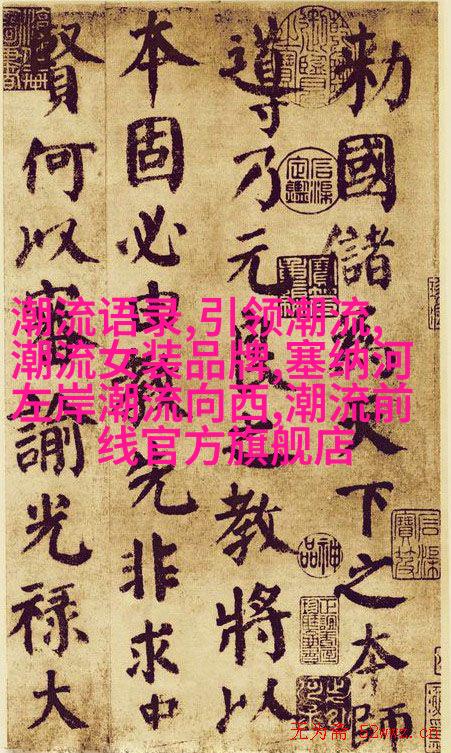 勑國儲為天下之本師
導乃元良之教將以
本固必由教先非求中
賢何以審諭光祿大
潮流语录,引领潮流,
潮流女装品牌,塞纳河
左岸潮流向西,潮流前
线官方旗舰店
神品
无为斋 52wwz.cn